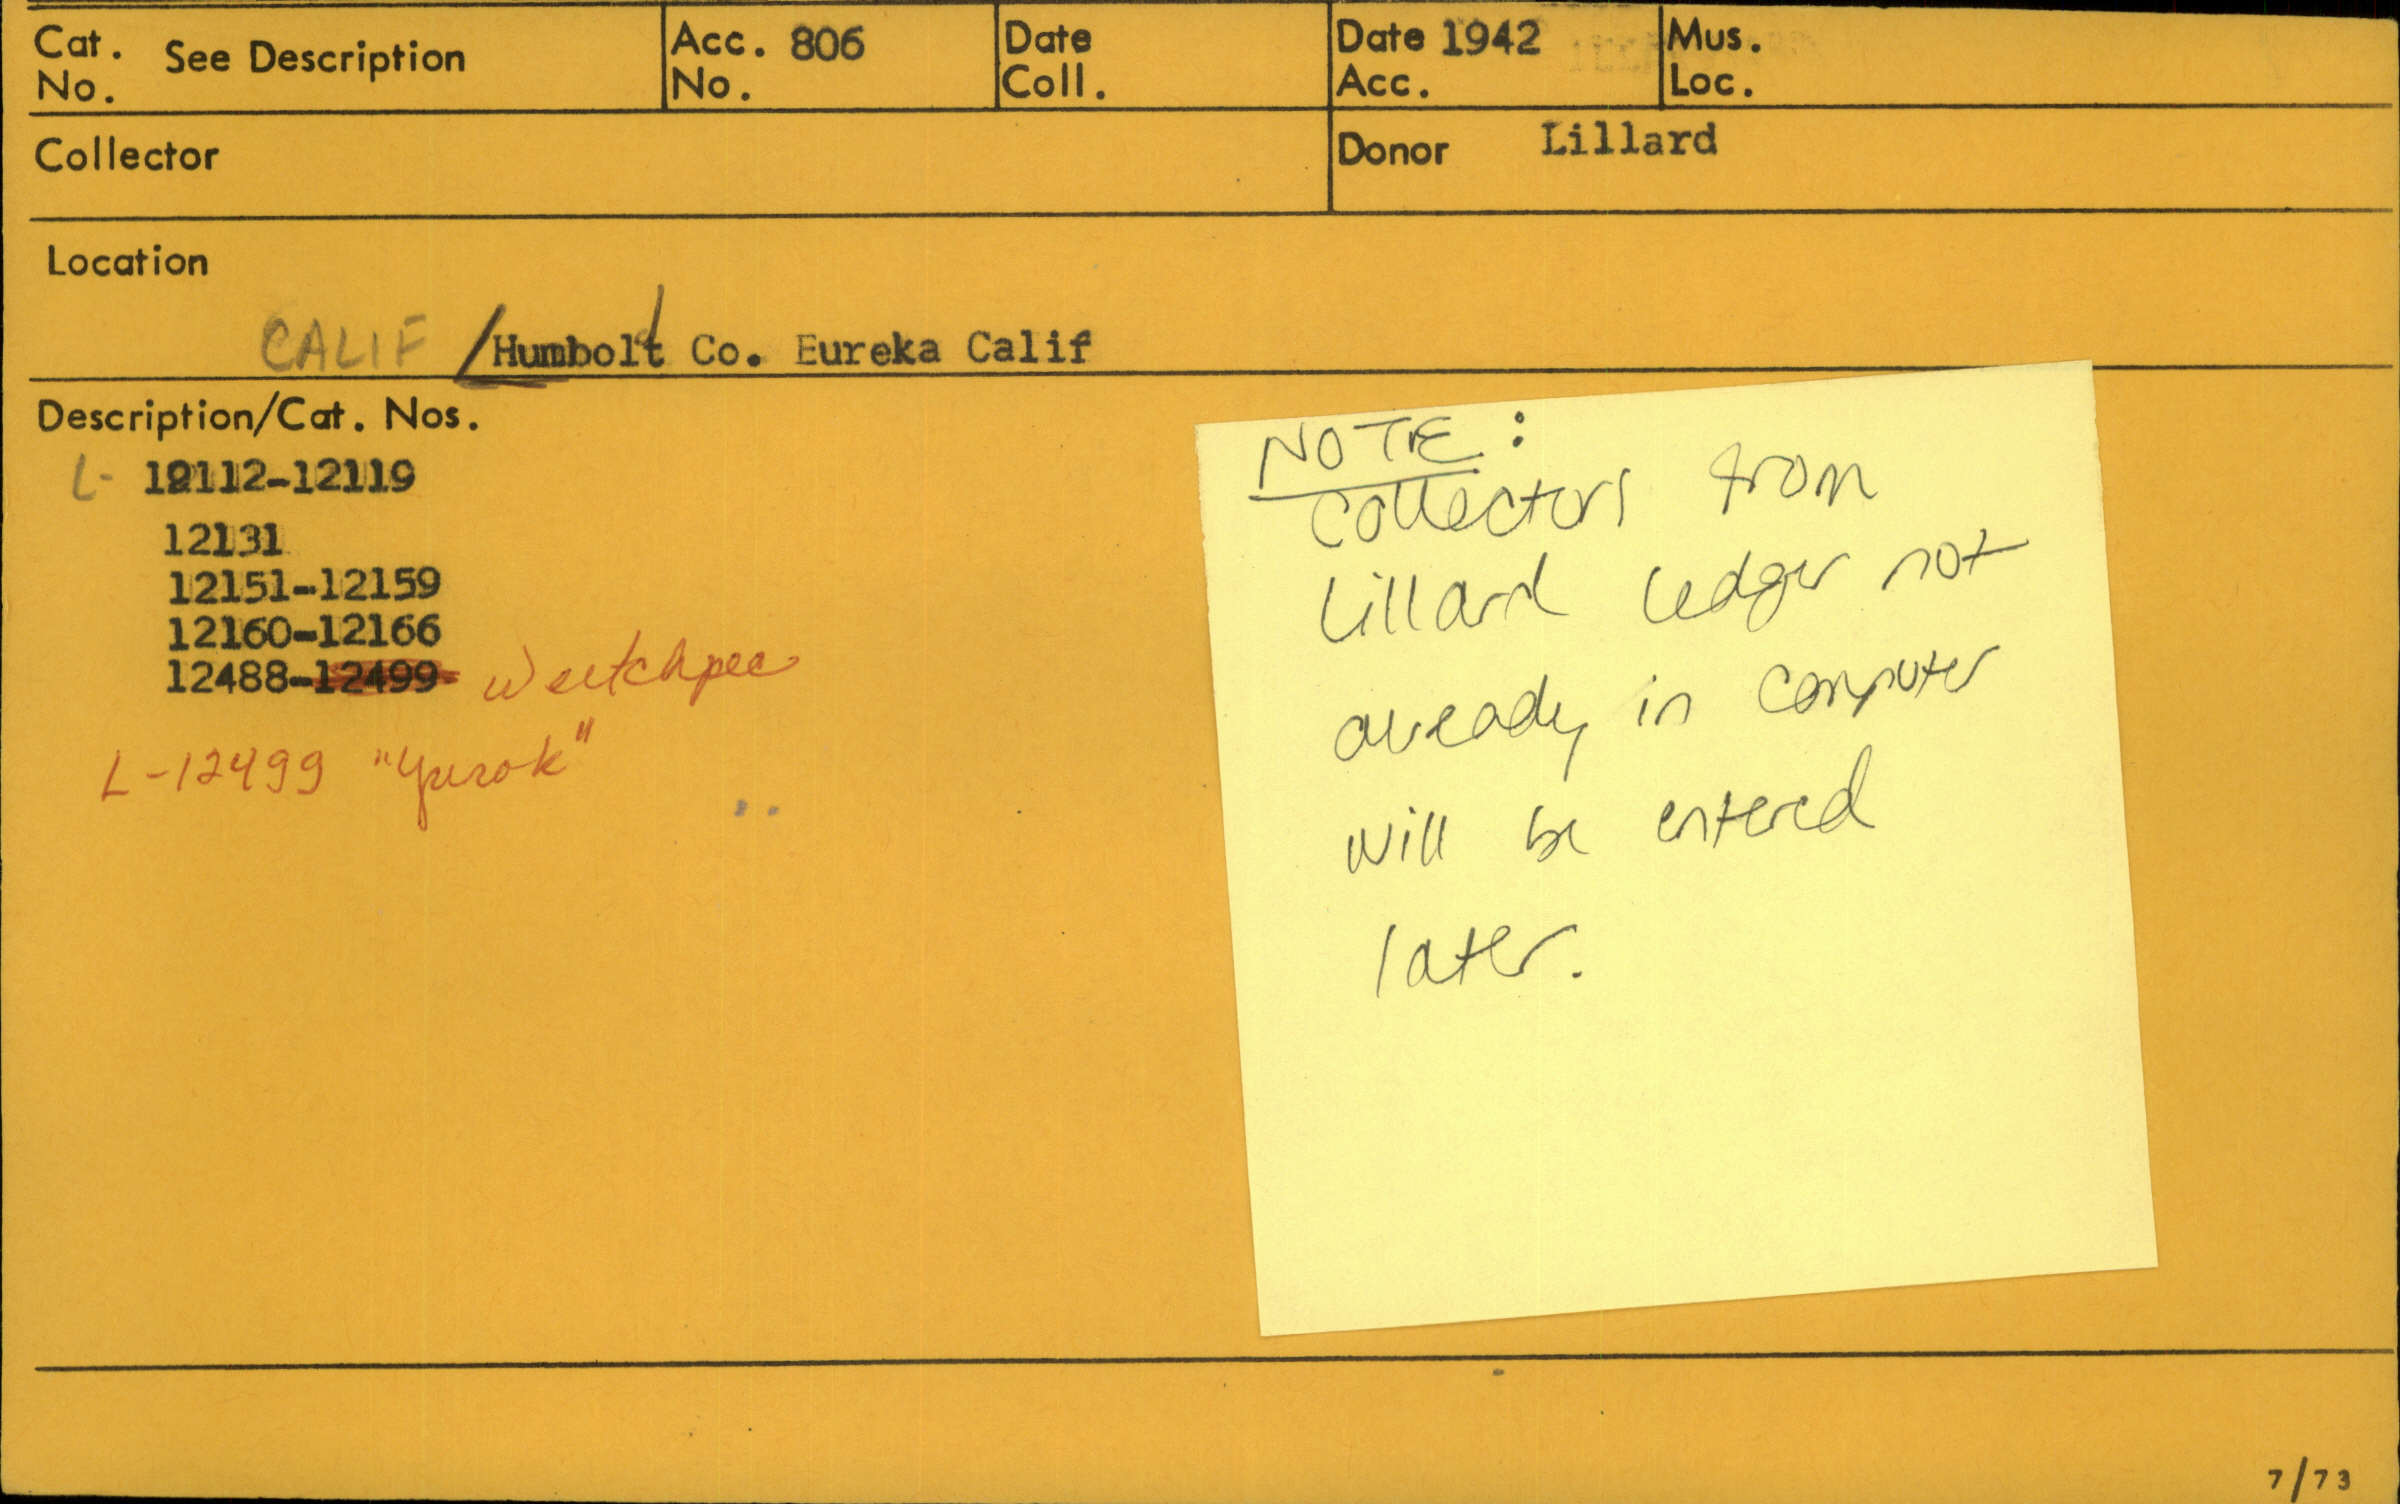 Cat. No. See Description
Acc. No. 806
Date Coll.
Date Acc. 1942
Mus. Loc.
Collector
Donor Lillard
Location
CALIF / Humboldt Co. Eureka Calif
Description/Cat. Nos.
L- 12112-12119
12131
12151-12159
12160-12166
12488-12499 Weitchpec
L-12499 "Yurok"
NOTE:
Collectors from
Lillard ledger not
already in computer
will be entered
later.
7/73